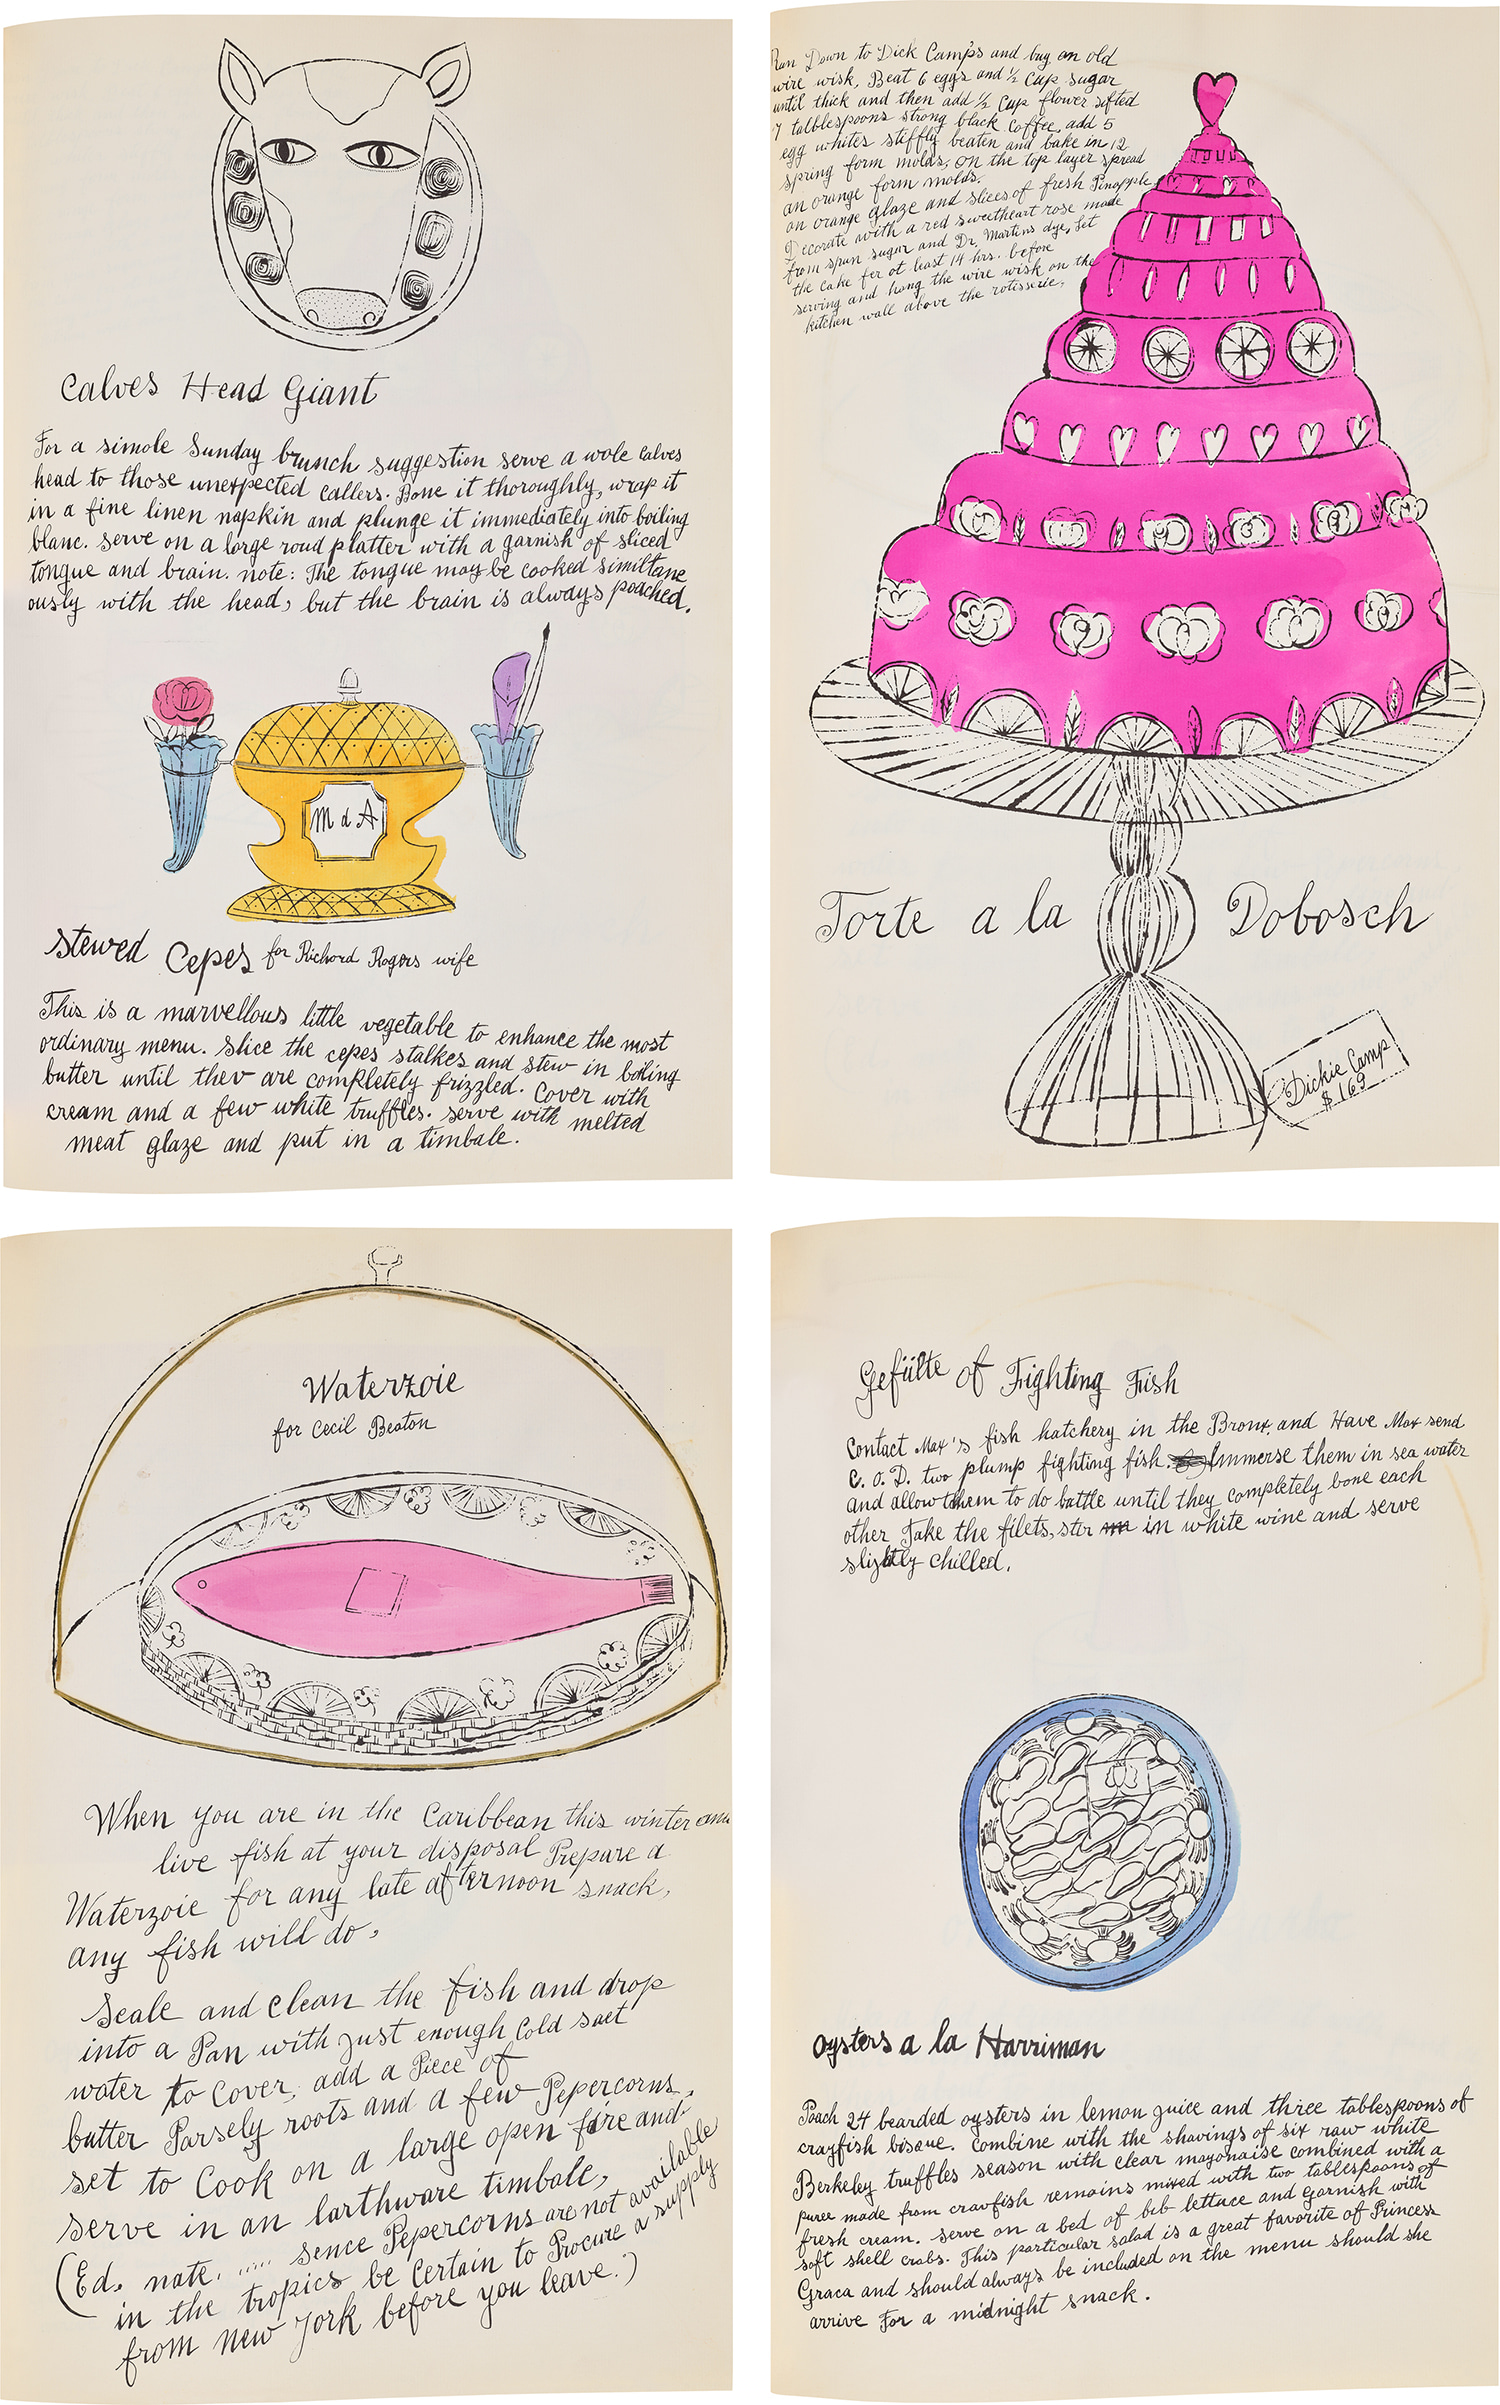 Calves Head Giant
For a simole Sunday brunch suggestion serve a wole calves
head to those unexpected callers. Bone it thoroughly, wrap it
in a fine linen napkin and plunge it immediately into boiling
blanc. serve on a large roud platter with a garnish of sliced
tongue and brain. note: The tongue may be cooked similtane
ously with the head, but the brain is always poached.
M d A
Stewed Cepes for Richard Rogers wife
This is a marvellous little vegetable to enhance the most
ordinary menu. Slice the cepes stalkes and stew in boiling
butter until thev are completely frizzled. Cover with
cream and a few white truffles. serve with melted
meat glaze and put in a timbale.
Run Down to Dick Camp's and buy an old
wire wisk, Beat 6 eggs and ½ cup sugar
until thick and then add ½ cup flower sifted
7 talblespoons strong black coffee, add 5
egg whites stiffly beaten and bake in 12
spring form molds, on the top layer spread
an orange form molds.
an orange glaze and slices of fresh Pinapple
Decorate with a red sweetheart rose made
from spun sugar and Dr. Martins dye, Let
the cake fer at least 14 hrs. before
serving and hang the wire wisk on the
kitchen wall above the rotisserie,
Torte a la Dobosch
Dickie Camp
$169
Waterzoie
for Cecil Beaton
When you are in the Caribbean this winter and
live fish at your disposal Prepare a
Waterzoie for any late afternoon snack,
any fish will do,
Scale and clean the fish and drop
into a Pan with just enough Cold saet
water to Cover, add a Piece of
butter Parsely roots and a few Pepercorns,
set to Cook on a large open fire and
serve in an earthware timbale,
(Ed. note. ..... sence Pepercorns are not available
in the tropics be certain to Procure a supply
from New York before you leave.)
Gefülte of Fighting Fish
Contact Max's fish hatchery in the Bronx, and Have Max send
C. O. D. two plump fighting fish. Immerse them in sea water
and allow tham to do battle until they completely bone each
other Take the filets, ster in white wine and serve
slightly chilled.
Oysters a la Harriman
Poach 24 bearded oysters in lemon juice and three tablespoons of
crayfish bisque. Combine with the shavings of six raw white
Berkeley truffles season with clear mayonaise combined with a
puree made from crayfish remains mixed with two tablespoons of
fresh cream. serve on a bed of bib lettuce and garnish with
soft shell crabs. This particular salad is a great favorite of Princess
Graca and should always be included on the menu should she
arrive for a midnight snack.